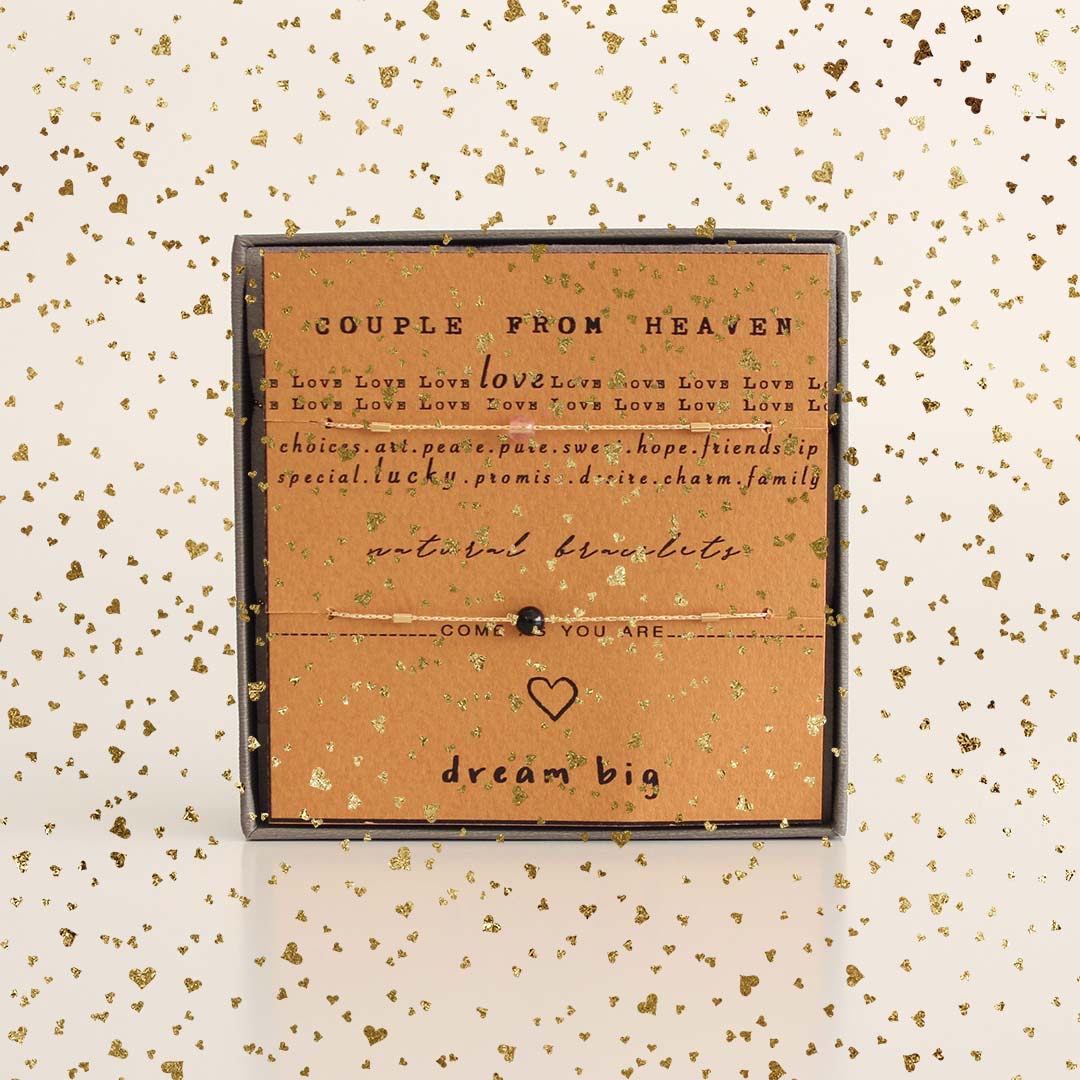 COUPLE FROM HEAVEN
E LOVE LOVE LOVE love LOVE LOVE LOVE LOVE LO
E LOVE LOVE LOVE LOVE LOVE LOVE LOVE LOVE LO
choices.art.peace.pure.sweet.hope.friendship
special.lucky.promise.desire.charm.family
natural bracelets
COME AS YOU ARE
dream big